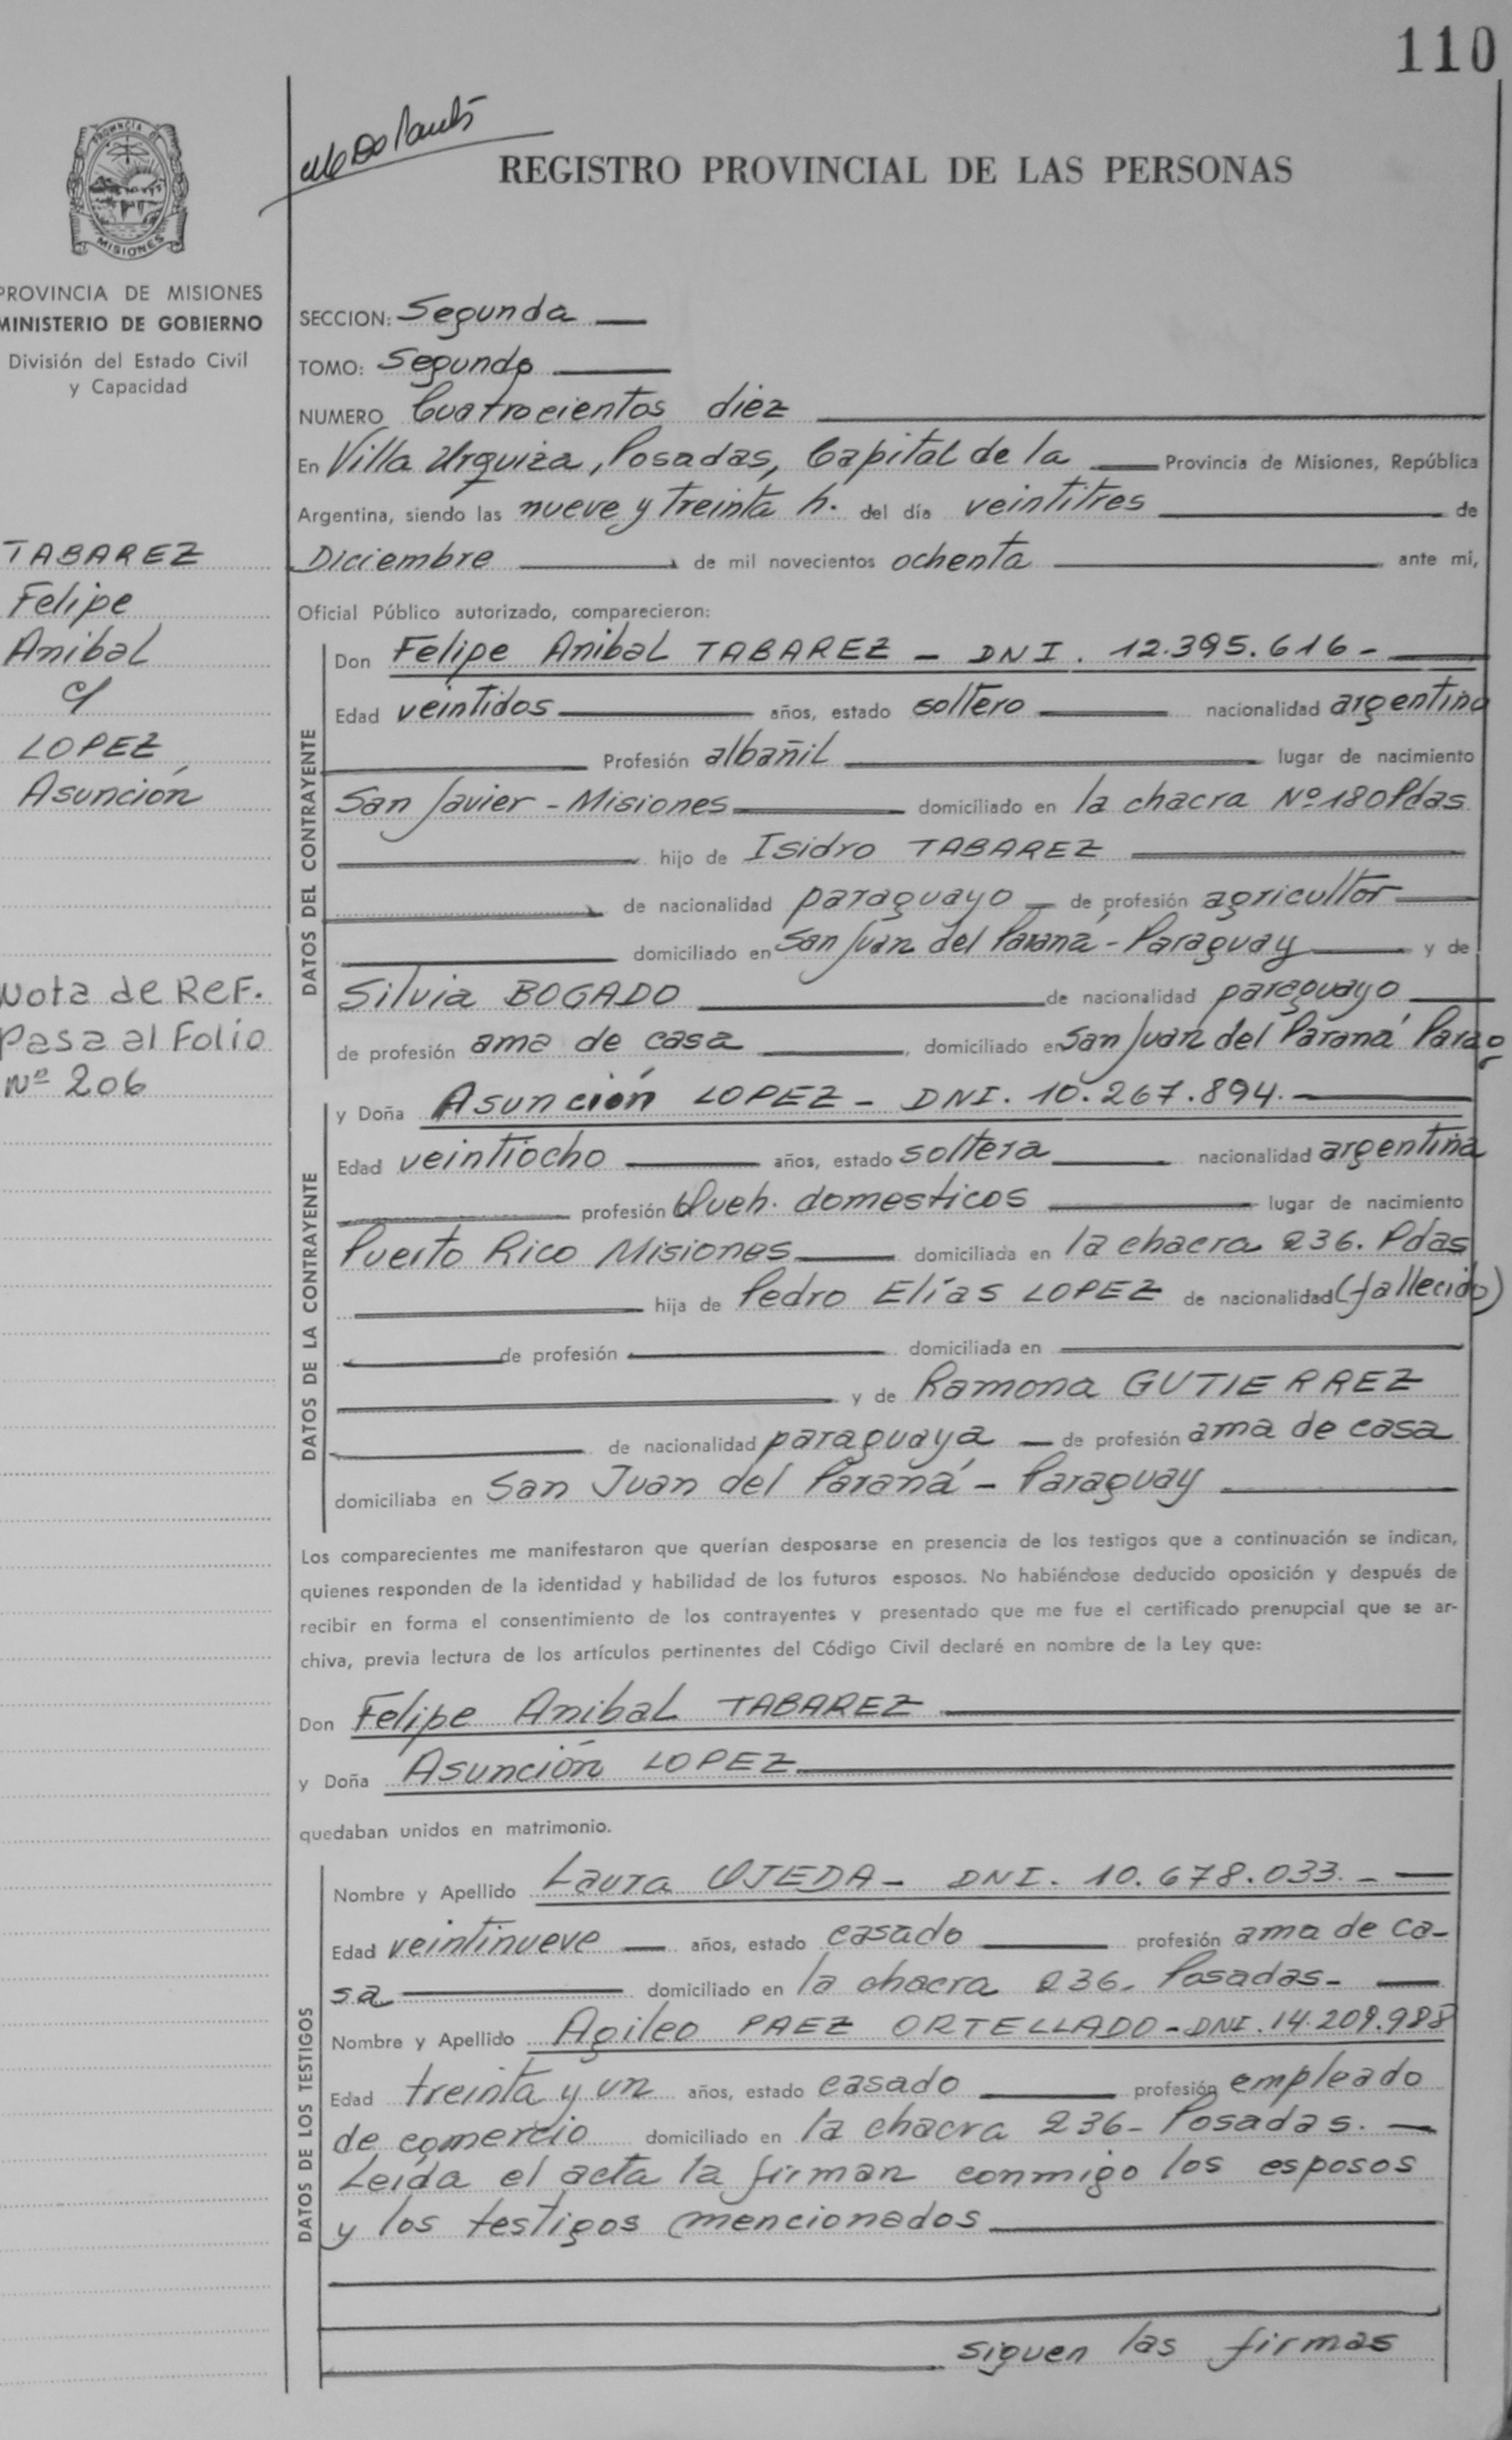 110
PROVINCIA DE
MISIONES
REGISTRO PROVINCIAL DE LAS PERSONAS
PROVINCIA DE MISIONES
MINISTERIO DE GOBIERNO
División del Estado Civil
y Capacidad
TABAREZ
Felipe
Anibal
c/
LOPEZ
Asunción
Nota de Ref.
Pasa al Folio
Nº 206
SECCION: Segunda
TOMO: Segundo
NUMERO Cuatrocientos diez
En Villa Urquiza, Posadas, Capital de la Provincia de Misiones, República
Argentina, siendo las nueve y treinta h. del día veintitres de
Diciembre de mil novecientos ochenta ante mi,
Oficial Público autorizado, comparecieron:
DATOS DEL CONTRAYENTE
Don Felipe Anibal TABAREZ - DNI. 12.395.616-
Edad veintidos años, estado soltero nacionalidad argentino
Profesión albañil lugar de nacimiento
San Javier - Misiones domiciliado en la chacra Nº 180 Pdas
hijo de Isidro TABAREZ
de nacionalidad paraguayo de profesión agricultor
domiciliado en San Juan del Paraná - Paraguay y de
Silvia BOGADO de nacionalidad paraguayo
de profesión ama de casa, domiciliado en San Juan del Paraná Parag
DATOS DE LA CONTRAYENTE
y Doña Asunción LOPEZ - DNI. 10.267.894.
Edad veintiocho años, estado soltera nacionalidad argentina
profesión Queh. domesticos lugar de nacimiento
Puerto Rico Misiones domiciliada en la chacra 236. Pdas
hija de Pedro Elías LOPEZ de nacionalidad (fallecido)
de profesión domiciliada en
y de Ramona GUTIERREZ
de nacionalidad paraguaya de profesión ama de casa
domiciliaba en San Juan del Paraná - Paraguay
Los comparecientes me manifestaron que querían desposarse en presencia de los testigos que a continuación se indican,
quienes responden de la identidad y habilidad de los futuros esposos. No habiéndose deducido oposición y después de
recibir en forma el consentimiento de los contrayentes y presentado que me fue el certificado prenupcial que se ar-
chiva, previa lectura de los artículos pertinentes del Código Civil declaré en nombre de la Ley que:
Don Felipe Anibal TABAREZ
y Doña Asunción LOPEZ
quedaban unidos en matrimonio.
DATOS DE LOS TESTIGOS
Nombre y Apellido Laura OJEDA - DNI. 10.678.033.-
Edad veintinueve años, estado casado profesión ama de ca-
sa domiciliado en la chacra 236. Posadas-
Nombre y Apellido Agileo PAEZ ORTELLADO - DNI. 14.209.988
Edad treinta y un años, estado casado profesión empleado
de comercio domiciliado en la chacra 236- Posadas.
Leída el acta la firman conmigo los esposos
y los testigos mencionados
siguen las firmas